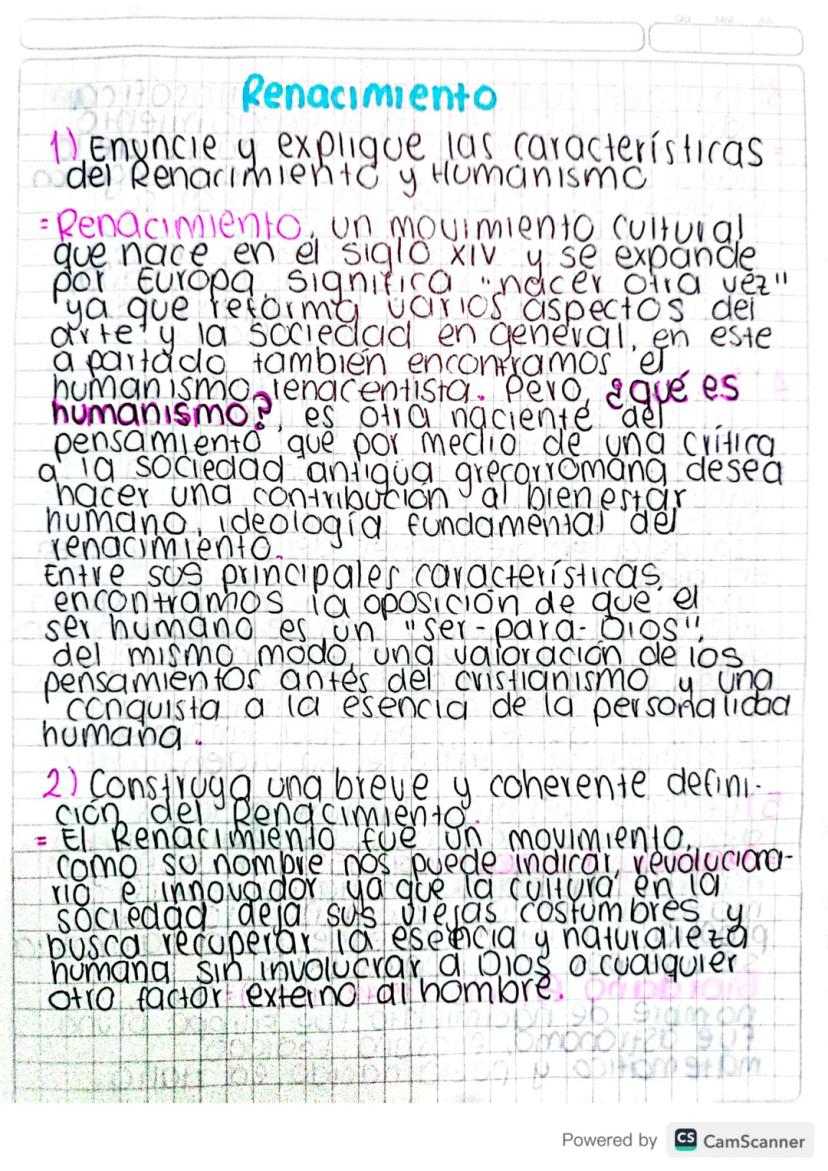 DD MM AA
Renacimiento
1) Enuncie y explique las características
del Renacimiento y Humanismo
= Renacimiento, un movimiento cultural
que nace en el siglo XIV y se expande
por Europa significa "nacer otra vez"
ya que reforma varios aspectos del
arte y la sociedad en general, en este
apartado también encontramos el
humanismo renacentista. Pero, ¿qué es
humanismo?, es otra naciente del
pensamiento que por medio de una crítica
a la sociedad antigua grecorromana desea
hacer una contribución al bienestar
humano, ideología fundamental del
renacimiento.
Entre sus principales características
encontramos la oposición de que el
ser humano es un "ser-para-Dios",
del mismo modo, una valoración de los
pensamientos antes del cristianismo y una
conquista a la esencia de la personalidad
humana.
2) Construya una breve y coherente defini-
ción del Renacimiento.
= El Renacimiento fue un movimiento,
como su nombre nos puede indicar, revoluciona-
rio e innovador ya que la cultura en la
sociedad deja sus viejas costumbres y
busca recuperar la esencia y naturaleza
humana sin involucrar a Dios o cualquier
otro factor externo al hombre.
Powered by CS CamScanner